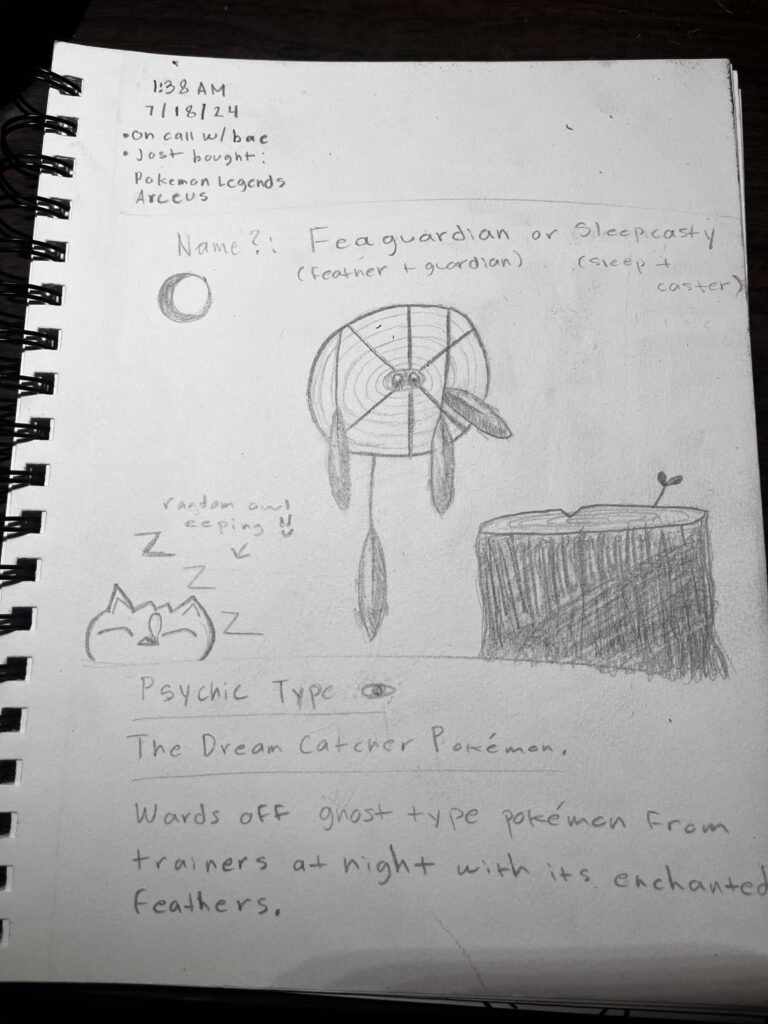 1:38 AM
7/18/24
• On call w/ bae
• Just bought:
Pokemon Legends
Arceus
Name?: Feaguardian or Sleepcasty
(feather + guardian) (sleep +
caster)
random owl
eeping !!
Z
Z
Z
Psychic Type
The Dream Catcher Pokémon.
Wards off ghost type pokémon from
trainers at night with its enchanted
feathers.